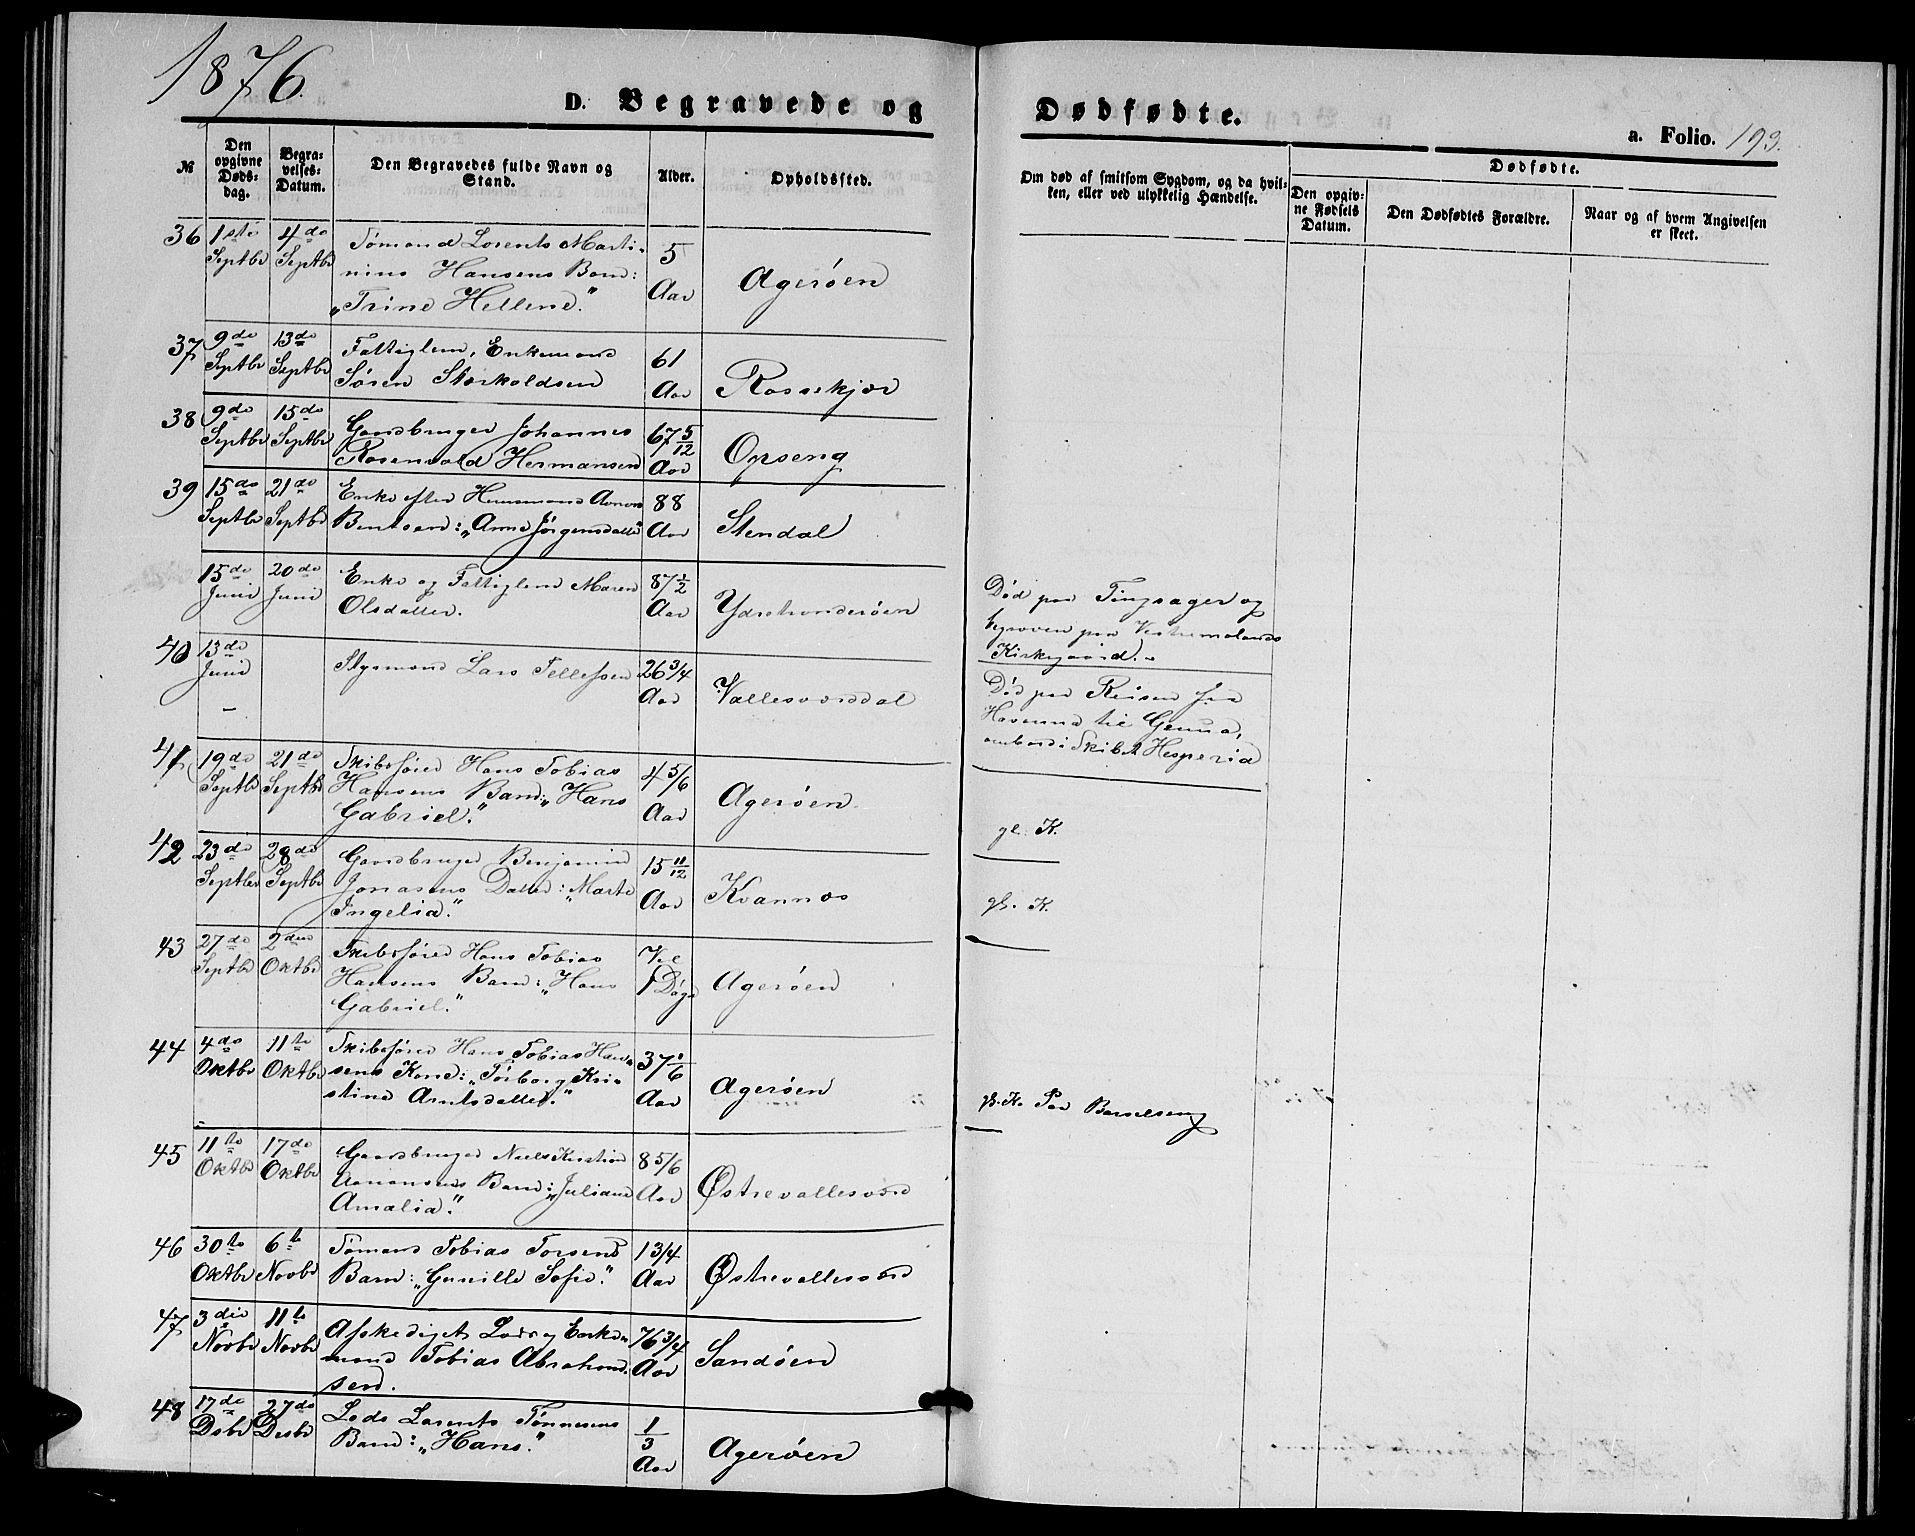 1876.
D. Begravede og
Dødfødte.
a. Folio. 193.
№
Den opgivne Døds-dag.
Begra-velses-Datum.
Den Begravedes fulde Navn og Stand.
Alder.
Opholdsfted.
Om død af smitsom Sygdom, og da hvil-ken, eller ved ulykkelig Hændelse.
Dødfødte.
Den opgiv-ne Fødsels Datum.
Den Dødfødtes Forældre.
Naar og af hvem Angivelsen er skeet.
36 1ste Septbr 4de Septbr Sømand Lorents Marti-
nius Hansens Barn:
„Trine Hellene.“ 5 Aar Agerøen
37 9de Septbr 13de Septbr Fattiglem, Enkemand
Søren Storkoldsen 61 Aar Rosselkjær
38 9de Septbr 15de Septbr Gaardbruger Johannes
Rosenvold Hermansen 67 5/12 Aar Opseng
39 15de Septbr 21de Septbr Enke efter Huusmand Aanon
Bentsen: „Anne Jørgensdatter“ 88 Aar Stendal
15de Juni 20de Juni Enke og Fattiglem Maren
Olsdatter. 87 1/2 Aar Ydrehonderøen
Død paa Tingsager og
begraven paa Vestremolands
Kirkegaard.
40 13de Juni Styrmand Lars Tellefsen 26 3/4 Aar Vallesværddal
Død paa Reisen fra
Havanna til Genua,
ombord i Skibet Hesperia
41 19de Septbr 21de Septbr Skibsfører Hans Tobias
Hansens Barn: „Hans
Gabriel.“ 4 5/6 Aar Agerøen
gl. K.
42 23de Septbr 28de Septbr Gaardbruger Benjamin
Jonasens Datter: „Marte
Ingelia.“ 15 11/12 Aar Kvannes
gl. K.
43 27de Septbr 2den Oktbr Skibsfører Hans Tobias
Hansens Barn: „Hans
Gabriel.“ Vel 1 Døgn Agerøen
44 4de Oktbr 11te Oktbr Skibsfører Hans Tobias Han-
sens Kone: „Torborg Kri-
stine Arntsdatter.“ 37 1/6 Aar Agerøen
gl. K. Paa Barselseng
45 11te Oktbr 17de Oktbr Gaardbruger Niels Kristian
Aanonsens Barn: „Juliane
Amalia.“ 8 5/6 Aar Østrevallesværd
46 30te Oktbr 6te Novbr Sømand Tobias Torsens
Barn: „Gunille Sofie.“ 1 3/4 Aar Østrevallesværd
47 3die Novbr 11te Novbr Afskediget Lods og Enke-
mand Tobias Abraham-
sen. 76 3/4 Aar Sandøen
48 17de Dsbr 27de Desbr Lods Lorents Tønnesens
Barn: „Hans.“ 1/3 Aar Agerøen